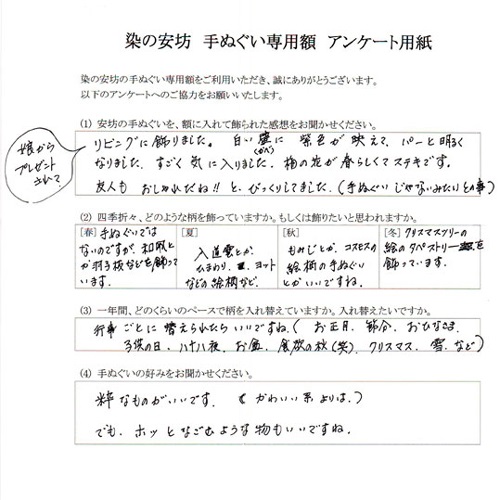 染の安坊 手ぬぐい専用額 アンケート用紙
染の安坊の手ぬぐい専用額をご利用いただき、誠にありがとうございます。
以下のアンケートへのご協力をお願いいたします。
(1) 安坊の手ぬぐいを、額に入れて飾られた感想をお聞かせください。
娘から
プレゼント
されて?
リビングに飾りました。白い壁に 紫色が映えて、パーと明るく
(かべ)
なりました。すごく気に入りました。梅の花が春らしくてステキです。
友人も おしゃれだね!!と、びっくりしてました。(手ぬぐいじゃないみたいとの事)
(2) 四季折々、どのような柄を飾っていますか。もしくは飾りたいと思われますか。
[春] 手ぬぐいでは
ないのですが、和凧と
か羽子板などを飾って
います。
[夏]
入道雲とか、
ひまわり、ヨット
などの絵柄など。
[秋]
もみじとか、コスモスの
絵柄の手ぬぐい
とかいいですね。
[冬] クリスマスツリーの
絵のタペストリーを
飾っています。
(3) 一年間、どのくらいのペースで柄を入れ替えていますか。入れ替えたいですか。
行事ごとに替えられたらいいですね。(お正月、節分、おひなさま、
子供の日、八十八夜、お盆、食欲の秋(笑)、クリスマス、雪、など)
(4) 手ぬぐいの好みをお聞かせください。
粋なものがいいです。(かわいい系よりは。)
でも、ホッとなごむような物もいいですね。